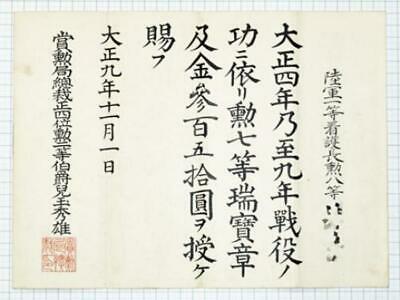 陸軍一等看護長勲八等
大正四年乃至九年戦役ノ
功ニ依リ勲七等瑞寶章
及金參百五拾圓ヲ授ケ
賜フ
大正九年十一月一日
賞勲局總裁正四位勲一等伯爵兒玉秀雄